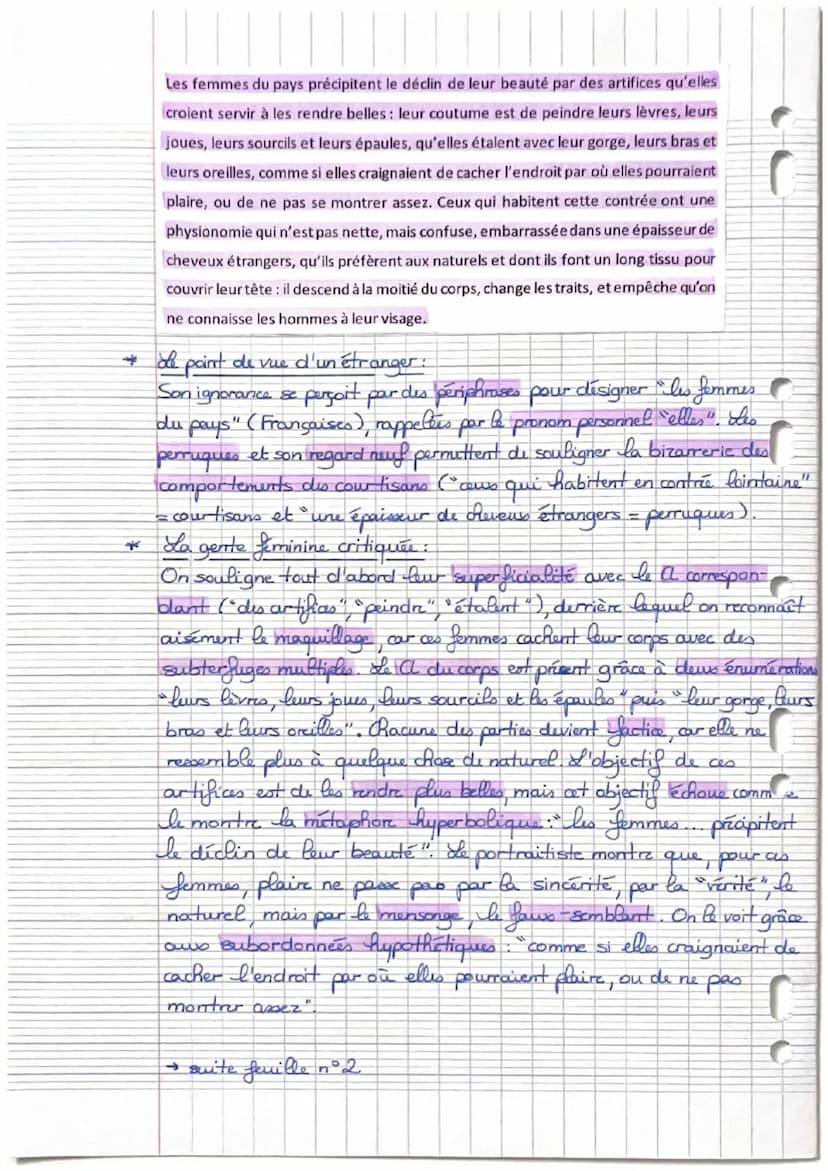 Les femmes du pays précipitent le déclin de leur beauté par des artifices qu'elles
croient servir à les rendre belles : leur coutume est de peindre leurs lèvres, leurs
joues, leurs sourcils et leurs épaules, qu'elles étalent avec leur gorge, leurs bras et
leurs oreilles, comme si elles craignaient de cacher l'endroit par où elles pourraient
plaire, ou de ne pas se montrer assez. Ceux qui habitent cette contrée ont une
physionomie qui n'est pas nette, mais confuse, embarrassée dans une épaisseur de
cheveux étrangers, qu'ils préfèrent aux naturels et dont ils font un long tissu pour
couvrir leur tête : il descend à la moitié du corps, change les traits, et empêche qu'on
ne connaisse les hommes à leur visage.
* Le point de vue d'un étranger :
Son ignorance se perçoit par des périphrases pour désigner "les femmes
du pays" (Françaises), rappelées par le pronom personnel "elles". Les
perruques et son regard neuf permettent de souligner la bizarrerie des
comportements des courtisans ("ceux qui habitent en contrée lointaine"
= courtisans et "une épaisseur de cheveux étrangers = perruques).
* La gente féminine critiquée :
On souligne tout d'abord leur superficialité avec le CL correspon-
dant ("des artifices", "peindre", "étalent"), derrière lequel on reconnaît
aisément le maquillage, car ces femmes cachent leur corps avec des
subterfuges multiples. Le CL du corps est présent grâce à deux énumérations
"leurs lèvres, leurs joues, leurs sourcils et les épaules" puis "leur gorge, leurs
bras et leurs oreilles". Chacune des parties devient factice, car elle ne
ressemble plus à quelque chose de naturel. L'objectif de ces
artifices est de les rendre plus belles, mais cet objectif échoue comme
le montre la métaphore hyperbolique : "les femmes... précipitent
le déclin de leur beauté". Le portraitiste montre que, pour ces
femmes, plaire ne passe pas par la sincérité, par la "vérité", le
naturel, mais par le mensonge, le faux-semblant. On le voit grâce
aux subordonnées hypothétiques : "comme si elles craignaient de
cacher l'endroit par où elles pourraient plaire, ou de ne pas
montrer assez".
→ suite feuille n°2